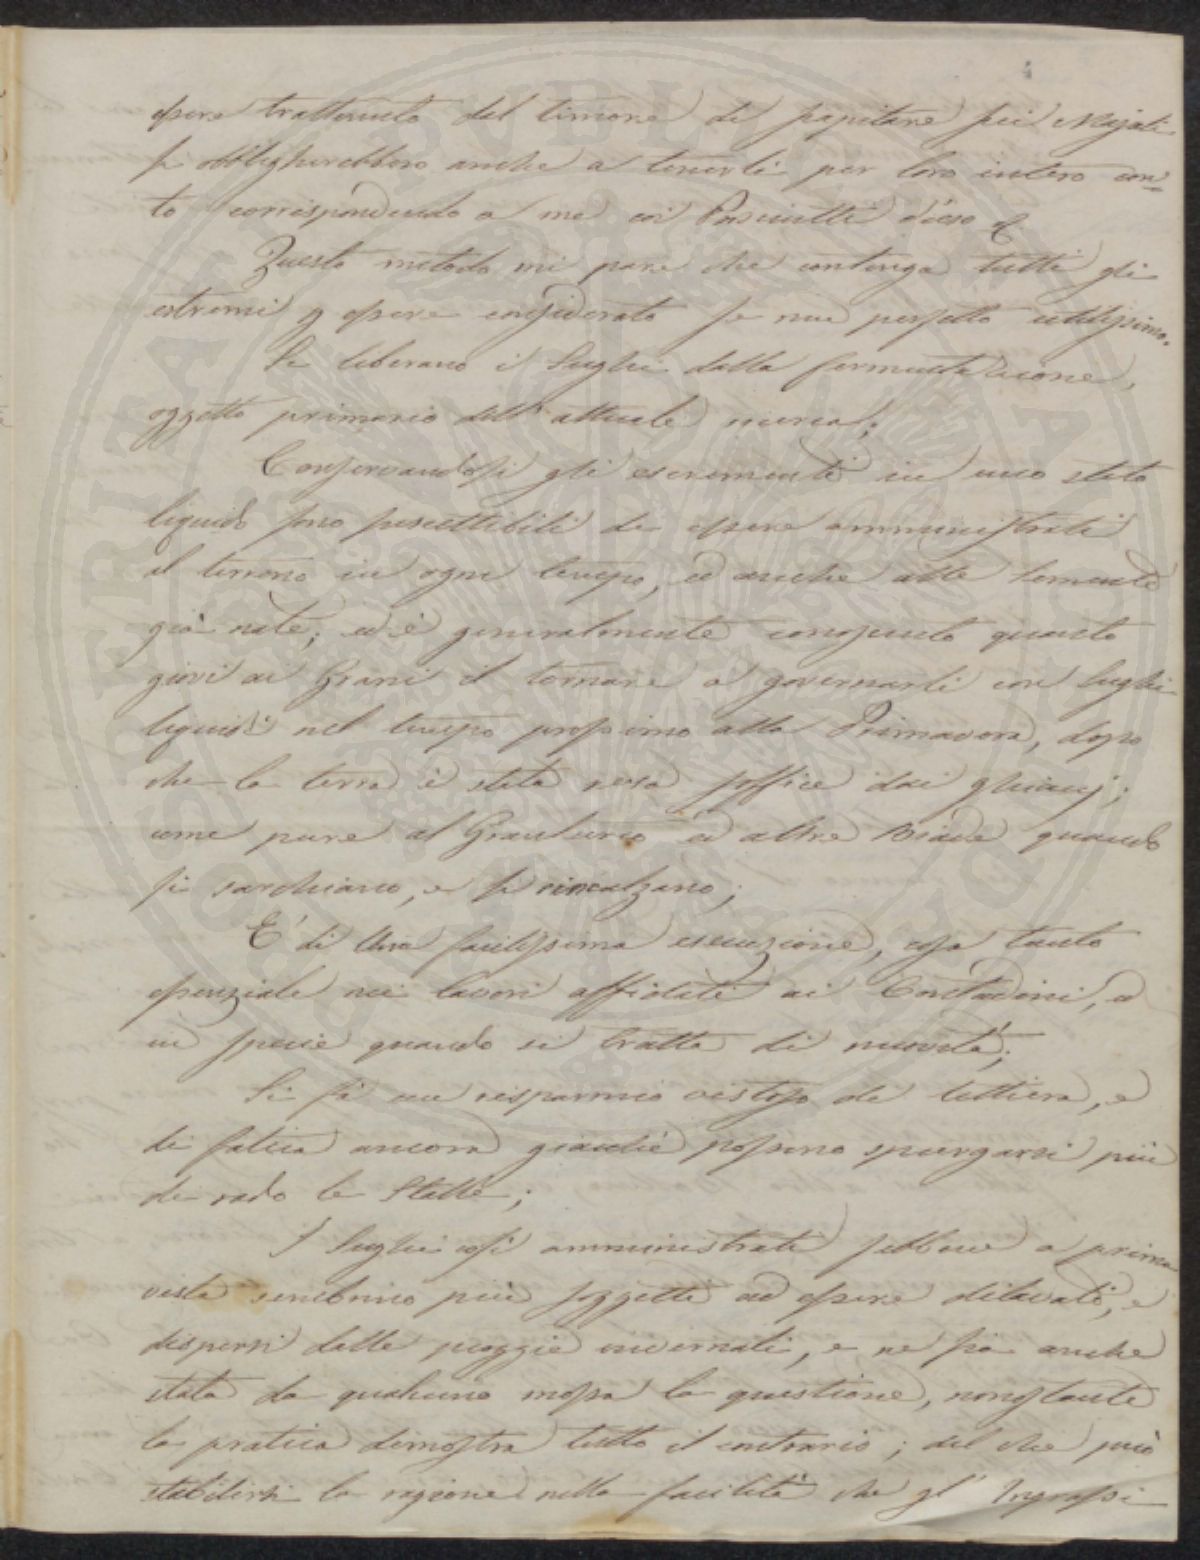 essere trattenuto dal timore di scapitare sui Majali
si obbligherebbero anche a tenerli per loro intero con=
to corrispondendo a me coi Prosciutti d'uso
Questo metodo mi pare che contenga tutti gli
estremi p essere considerato se non perfetto utilissimo.
Si liberano i Sughi dalla fermentazione,
oggetto primario dell'attuale mercè;
Conservandosi gli escrementi in uno stato
liquido sono suscettibili di essere amministrati
al terreno in ogni tempo, ed anche alle semente
già nate; ed è generalmente conosciuto quanto
giovi ai Grani il tornare a governarli con Sughi
liquidi nel tempo prossimo alla Primavera, dopo
che la terra è stata resa soffice dai ghiacj;
come pure al Granturco ed altre Biade quando
si sarchiano, e si rincalzano;
E' di Una facilissima esecuzione, cosa tanto
essenziale nei lavori affidati ai Contadini, ed
in specie quando si tratta di novità;
Si fà un risparmio vistoso di lettiera, e
di fatica ancora giacchè possono spurgarsi più
di rado le Stalle;
I Sughi così amministrati sebbene a prima
vista sembrino più soggetti ad essere dilavati, e
dispersi dalle pioggie invernali, e ne sia anche
stata da qualcuno mossa la questione, nonostante
la pratica dimostra tutto il contrario; del che può
stabilirsi la ragione nella facilità che gl' Ingrassi